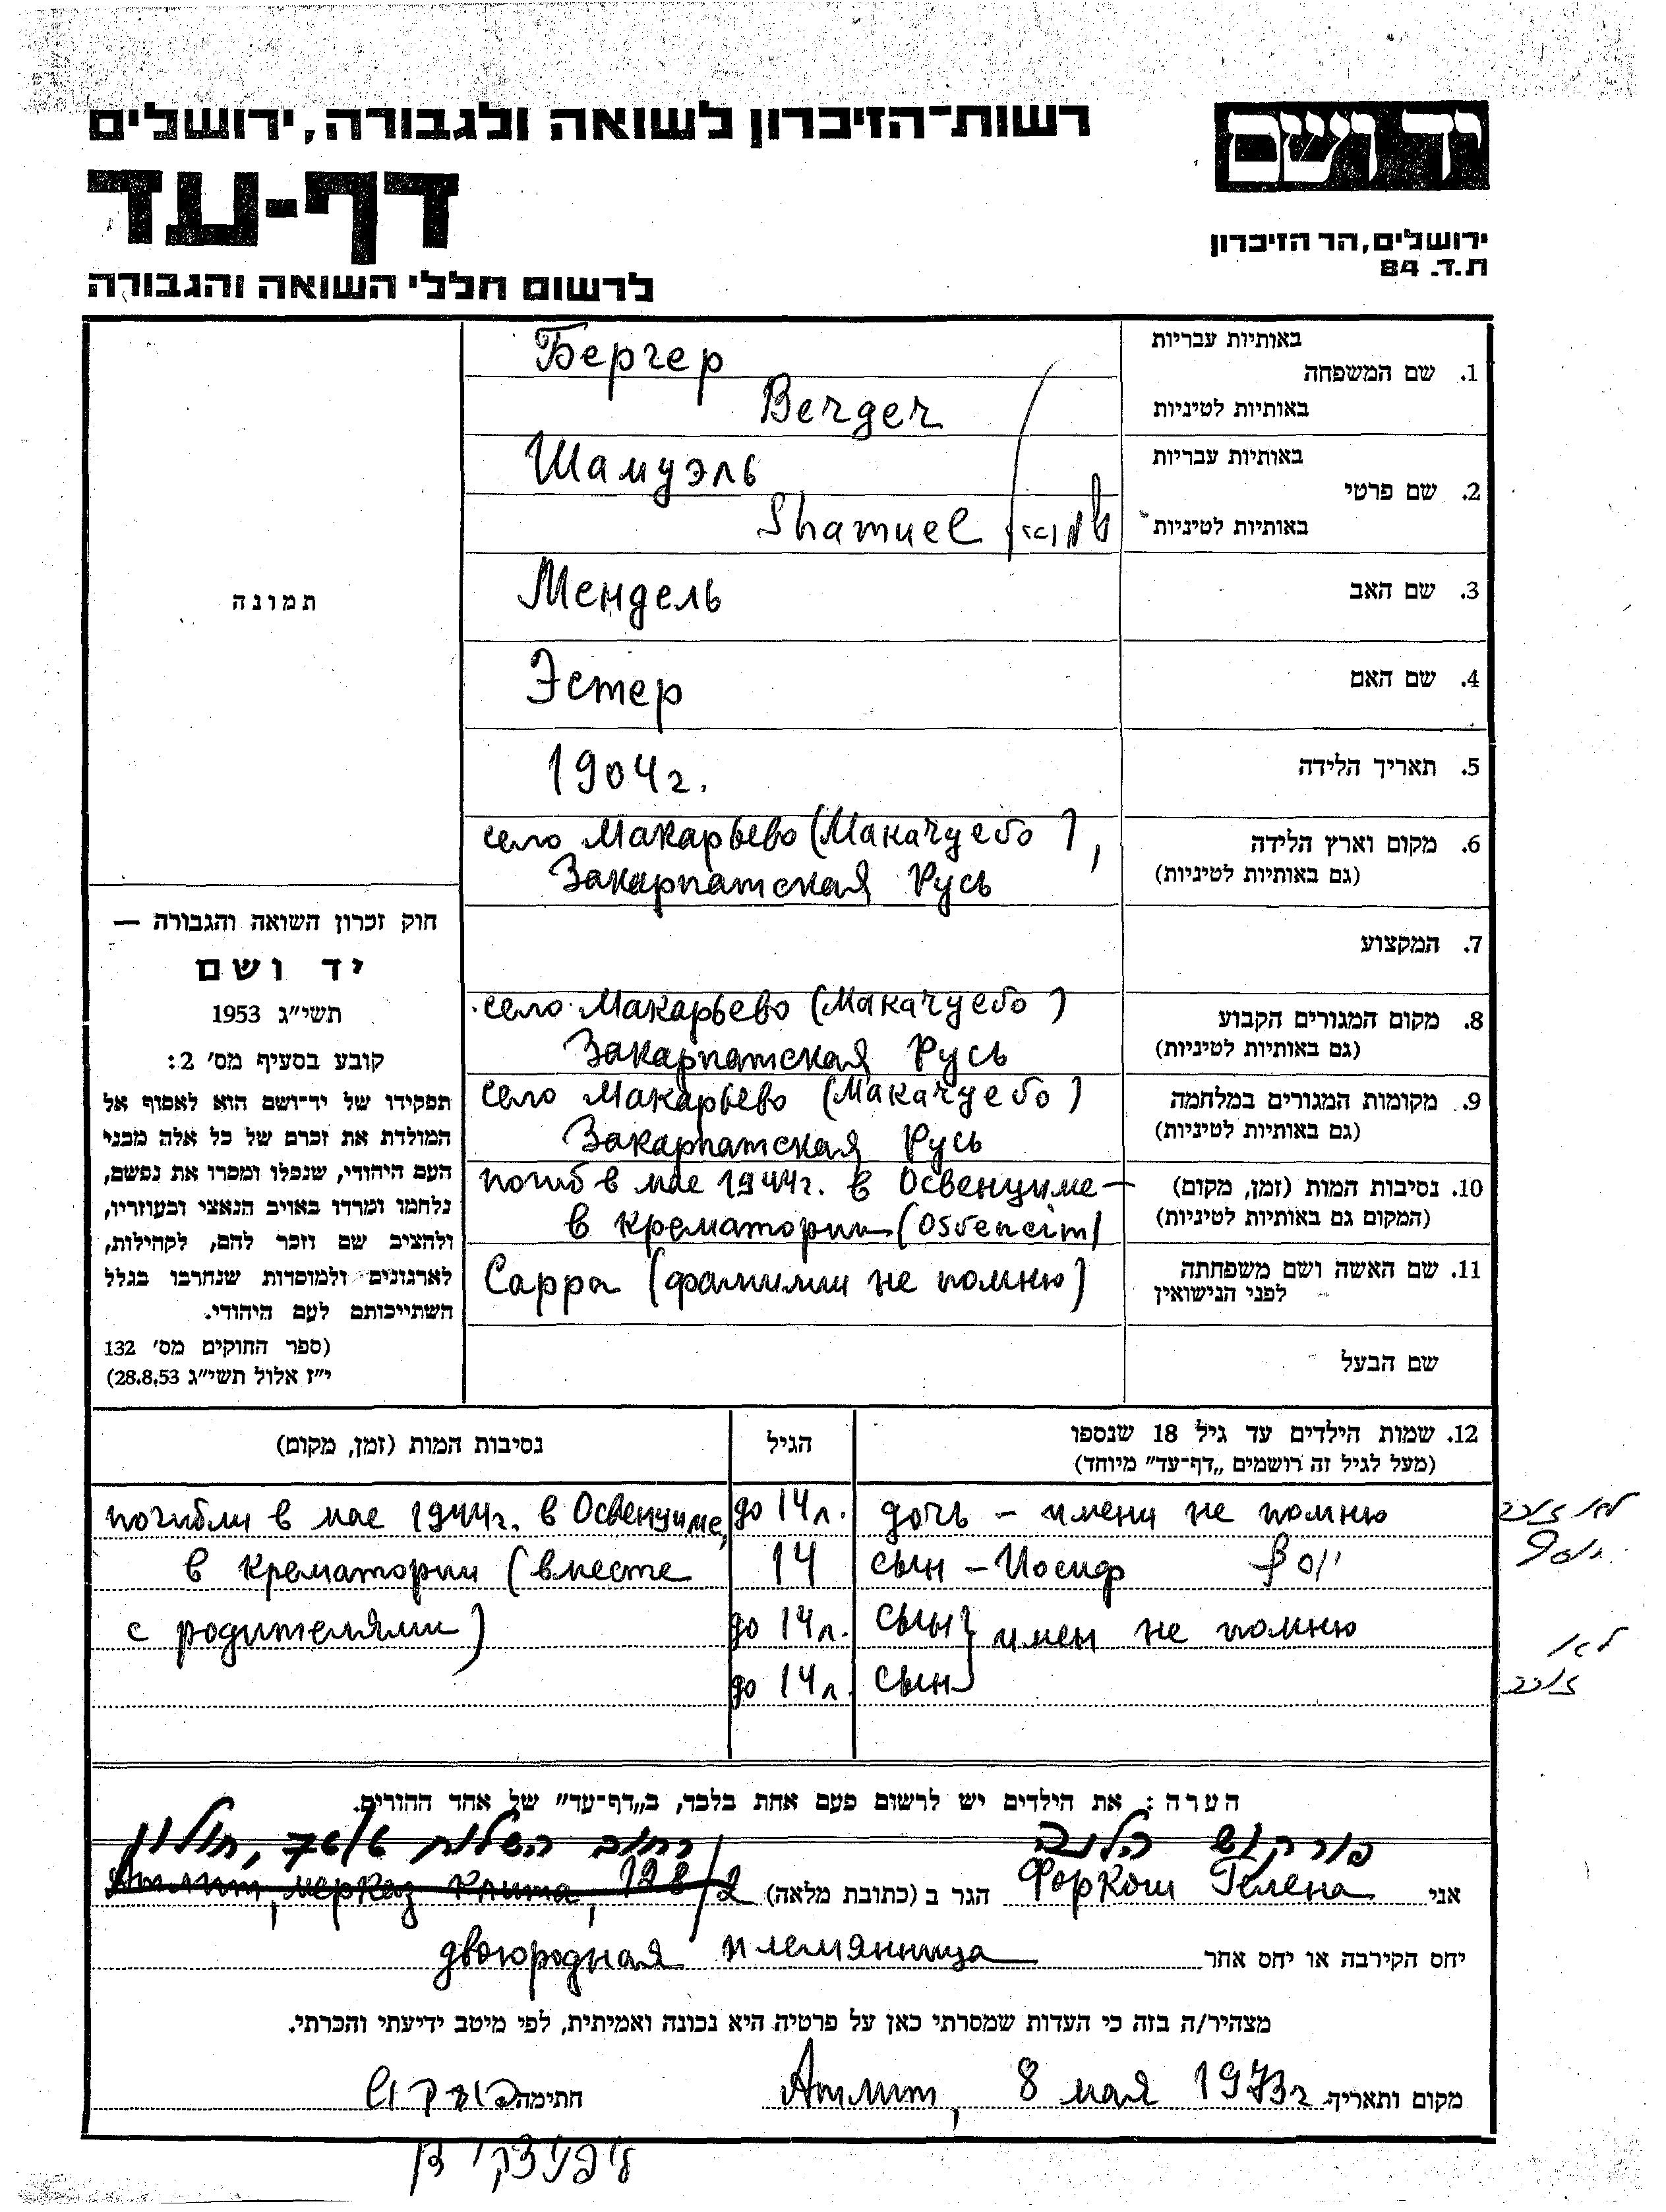 רשות־הזיכרון לשואה ולגבורה, ירושלים
יד ושם
דף-עד
ירושלים, הר הזיכרון
ת.ד. 84
לרשום חללי השואה והגבורה
באותיות עבריות
1. שם המשפחה
באותיות לטיניות
Бергер
Berger
באותיות עבריות
2. שם פרטי
באותיות לטיניות
Шамуэль
Shamuel
3. שם האב
Мендель
4. שם האם
Эстер
5. תאריך הלידה
1904 г.
6. מקום וארץ הלידה
(גם באותיות לטיניות)
село Макарьево (Макачуево),
Закарпатская Русь
7. המקצוע
8. מקום המגורים הקבוע
(גם באותיות לטיניות)
село Макарьево (Макачуево)
Закарпатская Русь
9. מקומות המגורים במלחמה
(גם באותיות לטיניות)
село Макарьево (Макачуево)
Закарпатская Русь
10. נסיבות המות (זמן, מקום)
(המקום גם באותיות לטיניות)
погиб в мае 1944 г. в Освенциме –
в крематории (Osvencim)
11. שם האשה ושם משפחתה
לפני הנישואין
Сарра (фамилии не помню)
שם הבעל
תמונה
חוק זכרון השואה והגבורה —
יד ושם
תשי״ג 1953
קובע בסעיף מס׳ 2:
תפקידו של יד־ושם הוא לאסוף אל
המולדת את זכרם של כל אלה מבני
העם היהודי, שנפלו ומסרו את נפשם,
נלחמו ומרדו באויב הנאצי ובעוזריו,
ולהציב שם וזכר להם, לקהילות,
לארגונים ולמוסדות שנחרבו בגלל
השתייכותם לעם היהודי.
(ספר החוקים מס׳ 132
י״ז אלול תשי״ג 28.8.53)
12. שמות הילדים עד גיל 18 שנספו
(מעל לגיל זה רושמים „דף־עד״ מיוחד)
הגיל
נסיבות המות (זמן, מקום)
дочь – имени не помню до 14 л. погибли в мае 1944 г. в Освенциме,
сын – Иосиф יוסף 14 в крематории (вместе
сын } имен не помню до 14 л. с родителями)
сын до 14 л.
הערה: את הילדים יש לרשום פעם אחת בלבד, ב„דף־עד״ של אחד ההורים.
פורקוש הלנה
אני Форкош Гелена הגר ב (כתובת מלאה) Атлит, мерказ клита, 128/2
יחס הקירבה או יחס אחר двоюродная племянница
מצהיר/ה בזה כי העדות שמסרתי כאן על פרטיה היא נכונה ואמיתית, לפי מיטב ידיעתי והכרתי.
מקום ותאריך Атлит, 8 мая 1973 г. חתימה פורקוש